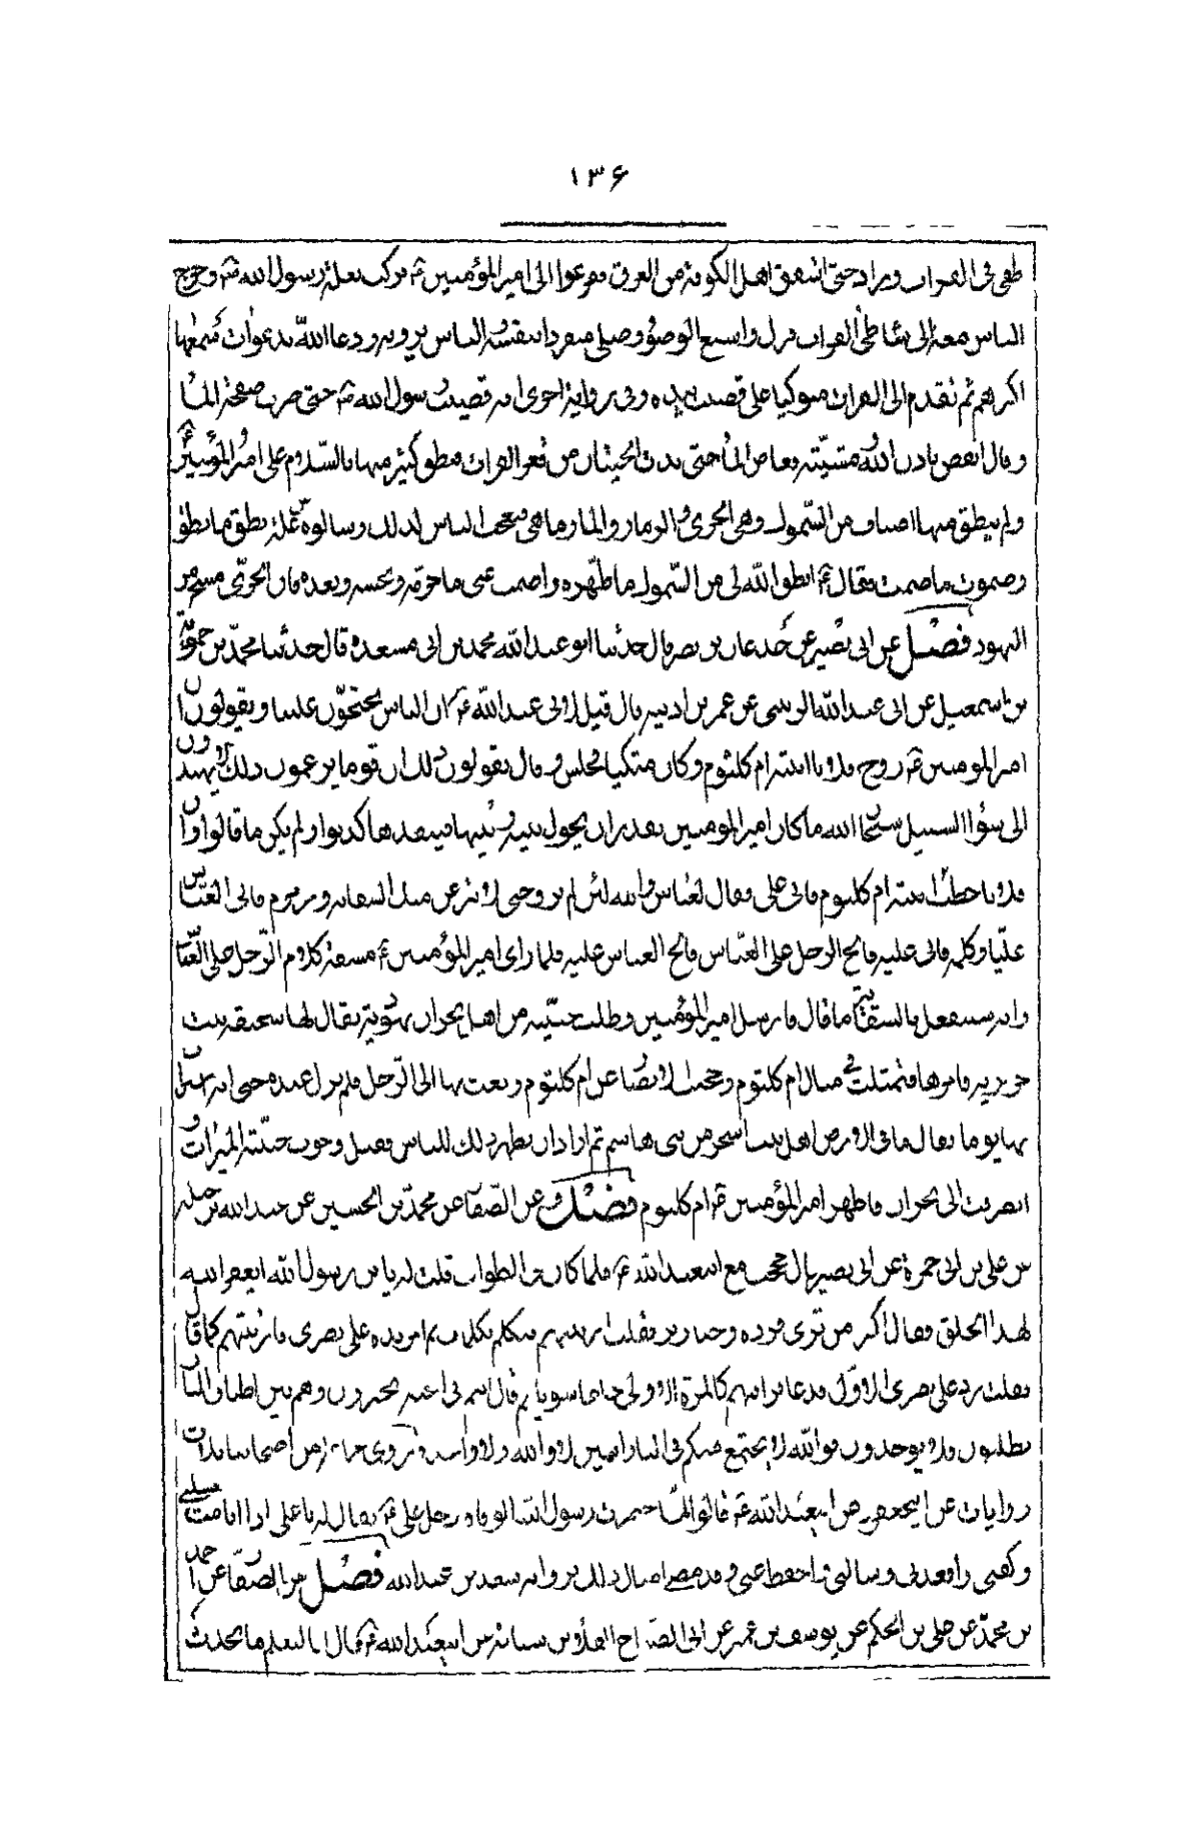 ١٣۶
طغى فى الفرات وزاد حتى اشفق اهل الكوفة من الغرق ففزعوا الى امير المؤمنين ع فركب بغلة رسول الله ص وخرج
الناس معه الى شاطئ الفرات فنزل واسبغ الوضوء وصلى منفردا بنفسه والناس يرونه ودعا الله بدعوات سمعها
اكثرهم ثم تقدم الى الفرات متوكيا على قضيب بيده وفى رواية اخرى انه قضيب رسول الله ص حتى ضرب صفحة الماء
وقال انقص باذن الله ومشيّته فغاض الماء حتى بدت الحيتان من قعر الفرات فنطق كثير منها بالسّلام على امير المؤمنين
ولم ينطق منها اصناف من السّموك وهى الجرى والزمار والمارماهى فتعجب الناس لذلك وسالوه عن علة نطق ما نطق
وصموت ما صمت فقال ع انطق الله لى من السّموك ما طهره واصمت عنى ما حرمه ونجسه وبعده فان الجرّى مسخ من
اليهود فصل عن ابى بصير عن جذعان بن نصر قال حدثنا ابو عبد الله محمد بن ابى مسعدة قال حدثنا محمّد بن حمويه
بن اسمعيل عن ابى عبد الله الزبينى عن عمر بن اذينه قال قيل لابى عبد الله ع ان الناس يحتجّون علينا ويقولون ان
امير المومنين ع زوج فلانا ابنته ام كلثوم وكان متكيا فجلس وقال يقولون ذلك ان قوما يزعمون ذلك لا يهتدون
الى سواء السبيل سبحان الله ما كان امير المومنين يقدر ان يحول بينه وبينها فينقذها كذبوا ولم يكن ما قالوا وان
فلانا خطب ابنته ام كلثوم فابى على فقال لعباس والله لئن لم يزوجنى لانزعن منك السقاية وزمزم فاتى العباس
عليّا وكلمه فابى عليه فالح الرجل على العبّاس فالح العباس عليه فلما راى امير المؤمنين ع مشقة كلام الرّجل على العبّاس
وانه سيفعل بالسقاية ما قال فارسل امير المؤمنين وطلب جنّيه من اهل نجران يهودية يقال لها سحيقة بنت
حريريه فامرها فتمثلت فى مثال ام كلثوم وحجبت الابصار عن ام كلثوم وبعث بها الى الرّجل فلم تزل عنده حتى انه استراب
بها يوما فقال ما فى الارض اهل بيت اسحر من بنى هاشم ثم اراد ان يظهر ذلك للناس فقتل وحوت جنّيّة الميراث و
انصرفت الى نجران فاظهر امير المؤمنين ع ام كلثوم فصل وعن الصّفار عن محمّد بن الحسين عن عبد الله بن جبله
عن على بن ابى حمزة عن ابى بصير قال حججت مع ابيعبد الله ع فلما كان فى الطواف قلت له يابن رسول الله ايغفر الله
لهذا الخلق فقال اكثر من ترى قردة وخنازير فقلت ارنيهم فتكلم بكلمات ثم امر يده على بصرى فارنيتهم كما قال
فقلت رد على بصرى الاوّل فدعا فرايتهم كالمرة الاولى ثم قال انتم فى الجنة تحبرون وهم بين اطباق النار
تطلبون فلا توجدون فوالله لا يجتمع منكم فى النار اثنين لا والله ولا واحد من اصحابنا ثلاث
روايات عن ابيجعفر وعن ابيعبد الله ع قالوا لمّا حضرت رسول الله الوفاة دخل على ع فقال له يا على اذا انا مت غسلنى
وكفنى واقعدنى وسائلنى واحفظ عنى فصل عن الصفار عن احمد
بن محمّد عن على بن الحكم عن يوسف بن عمير عن ابى الصّباح العلاء بن سيابة عن ابيعبد الله ع قال ان العلم ما يحدث